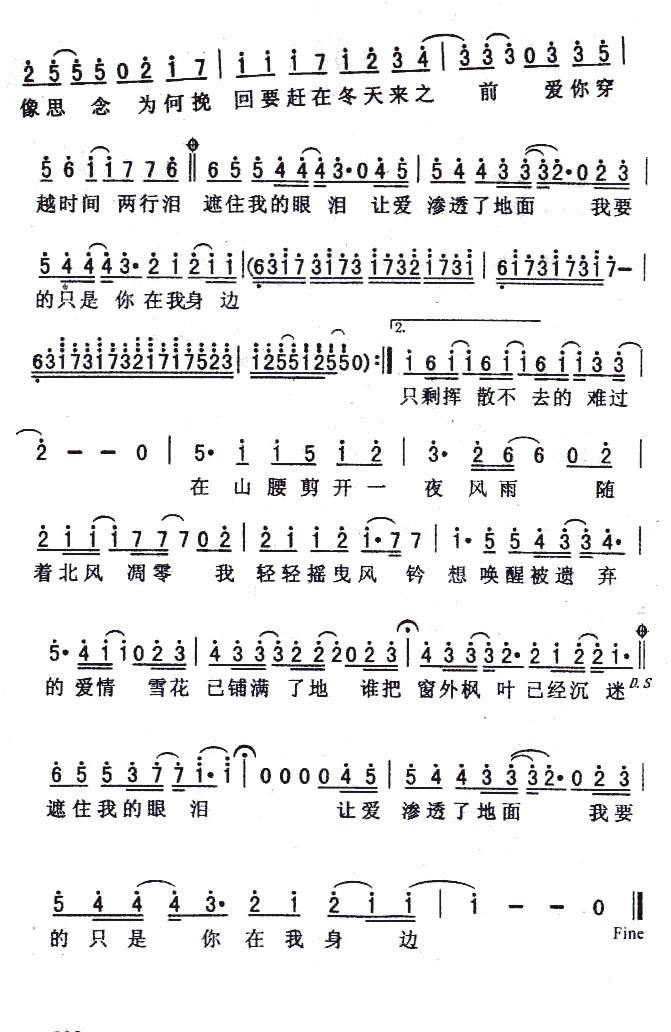 2 5 5 5 0 2 i 7 | i i i 7 i 2 3 4 | 3 3 3 0 3 3 5 |
像思 念 为何挽 回要赶在冬天来之 前 爱你穿
5 6 i i 7 7 6 || 6 5 5 4 4 4 3· 0 4 5 | 5 4 4 3 3 3 2· 0 2 3 |
越时间 两行泪 遮住我的眼 泪 让爱 渗透了地面 我要
5 4 4 4 3· 2 i 2 i i | (6 3 i 7 3 i 7 3 i 7 3 2 i 7 3 i | 6 i 7 3 i 7 3 i 7 –
的只是 你在我身 边
6 3 i 7 3 i 7 3 2 i 7 i 7 5 2 3 | i 2 5 5 i 2 5 5 0) :||
2.
i 6 i i 6 i i 6 i i 3 3 |
只剩挥 散不 去的 难过
2 – – 0 | 5· i i 5 i i 2 | 3· 2 6 6 0 2 |
在 山 腰 剪 开 一 夜 风 雨 随
2 i i i 7 7 7 0 2 | 2 i i 2 i· 7 7 | i· 5 5 4 3 3 4· |
着北风 凋零 我 轻轻摇曳风 铃 想唤醒被遗弃
5· 4 i i 0 2 3 | 4 3 3 3 2 2 2 0 2 3 | 4 3 3 3 2· 2 i 2 2 i· ||
的 爱情 雪花 已铺满 了地 谁把 窗外枫 叶已经沉 迷 D.S
6 5 5 3 7 7 i· i | 0 0 0 0 4 5 | 5 4 4 3 3 3 2· 0 2 3 |
遮住我的眼 泪 让爱 渗透了地面 我要
5 4 4 4 3· 2 i 2 i i | i – – 0 ||
的 只 是 你 在 我 身 边 Fine